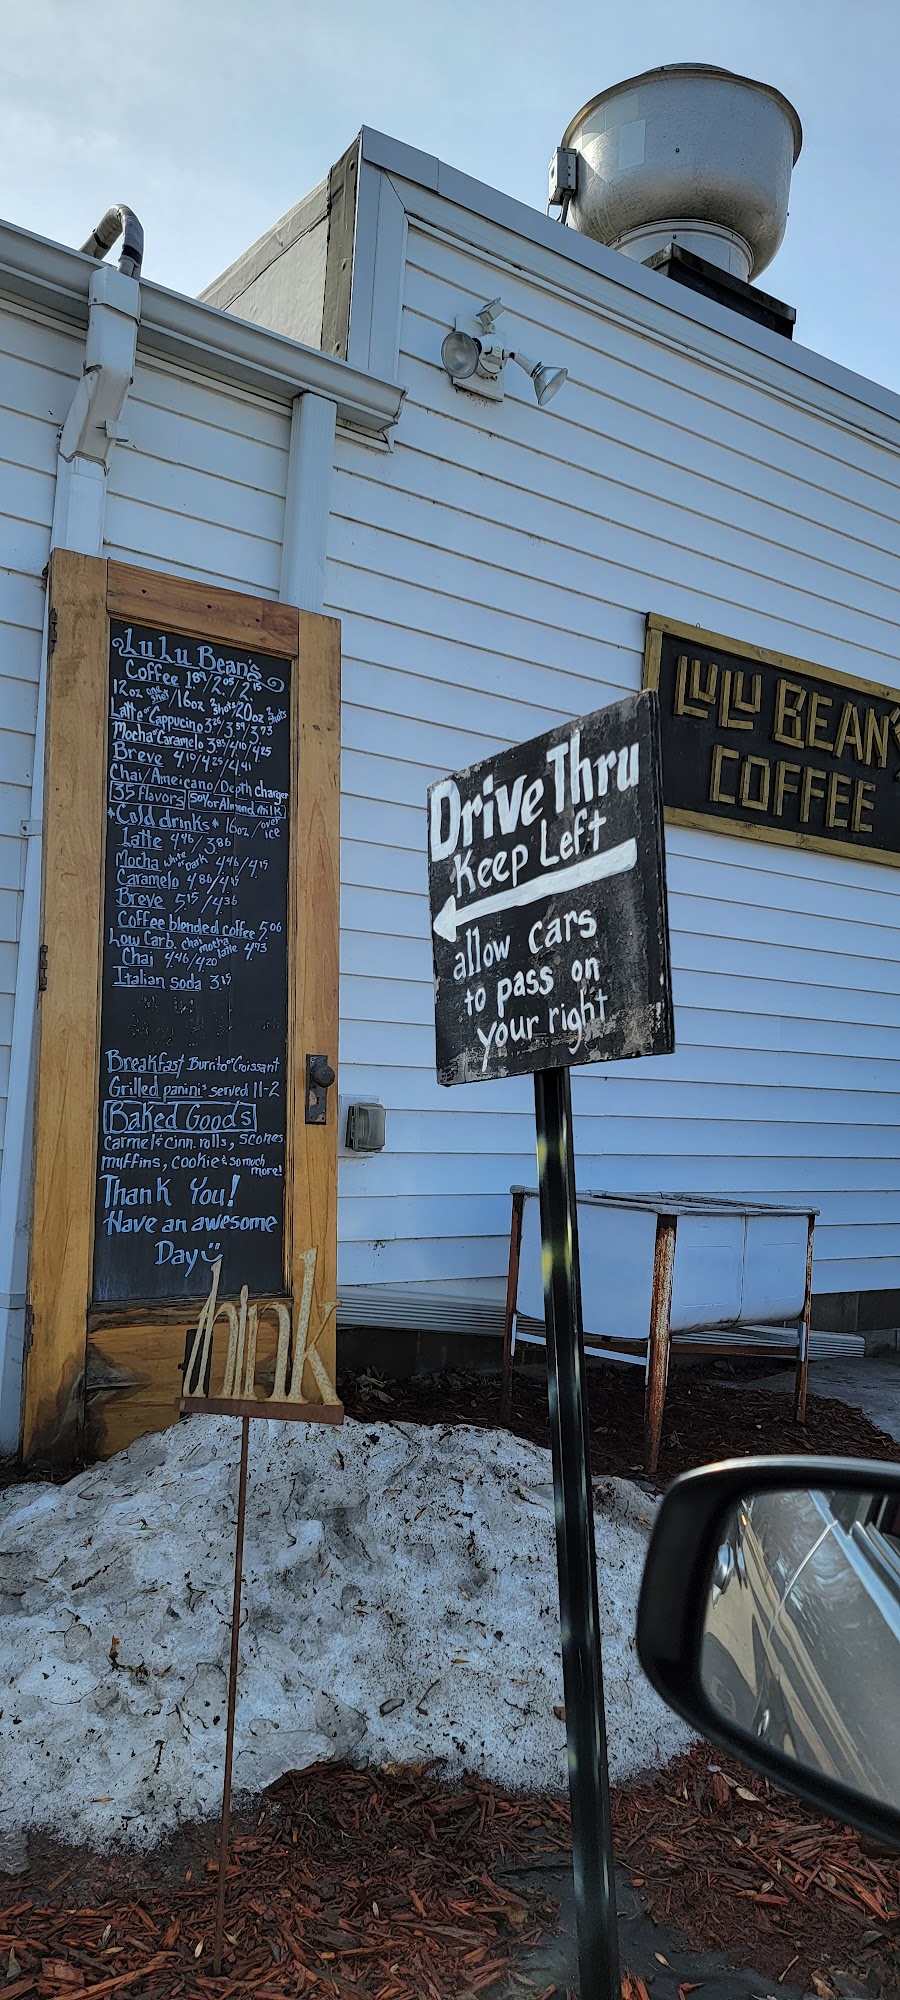 LuLu Bean's
Coffee 1.89/2.05/2.15
12oz one shot/16oz 2 shots/20oz 2 shots
Latte or Cappucino 3.26/3.59/3.73
Mocha or Caramelo 3.85/4.10/4.25
Breve 4.10/4.25/4.41
Chai/Americano/Depth charger
35 flavors Soy or Almond milk
*Cold drinks* 16oz/over ice
Latte 4.46/3.86
Mocha white or Dark 4.46/4.15
Caramelo 4.86/4.15
Breve 5.15/4.36
Coffee blended coffee 5.06
Low Carb. chai mocha latte 4.73
Chai 4.46/4.20
Italian soda 3.15
Breakfast Burrito or Croissant
Grilled panini's served 11-2
Baked Goods
Carmel & Cinn. rolls, scones
muffins, cookie & so much
more!
Thank You!
Have an awesome
Day
think
Drive Thru
Keep Left
allow cars
to pass on
your right
LULU BEAN'S
COFFEE